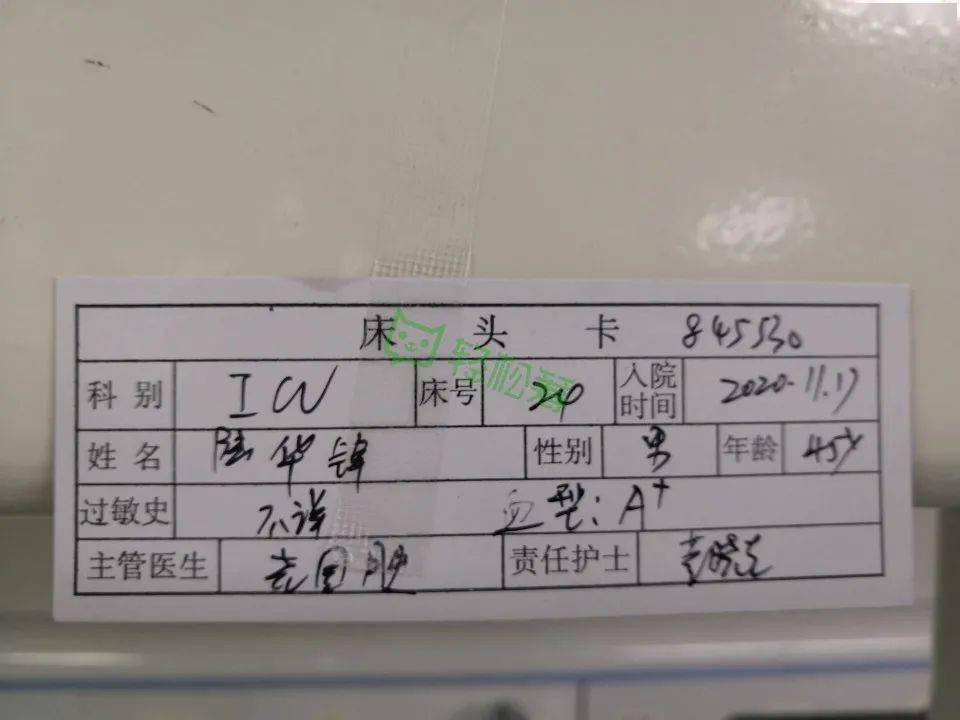 床头卡 845530
科别 ICU 床号 24 入院时间 2020.11.17
姓名 陆华锋 性别 男 年龄 45岁
过敏史 不详 血型：A+
主管医生 责任护士
轻松筹